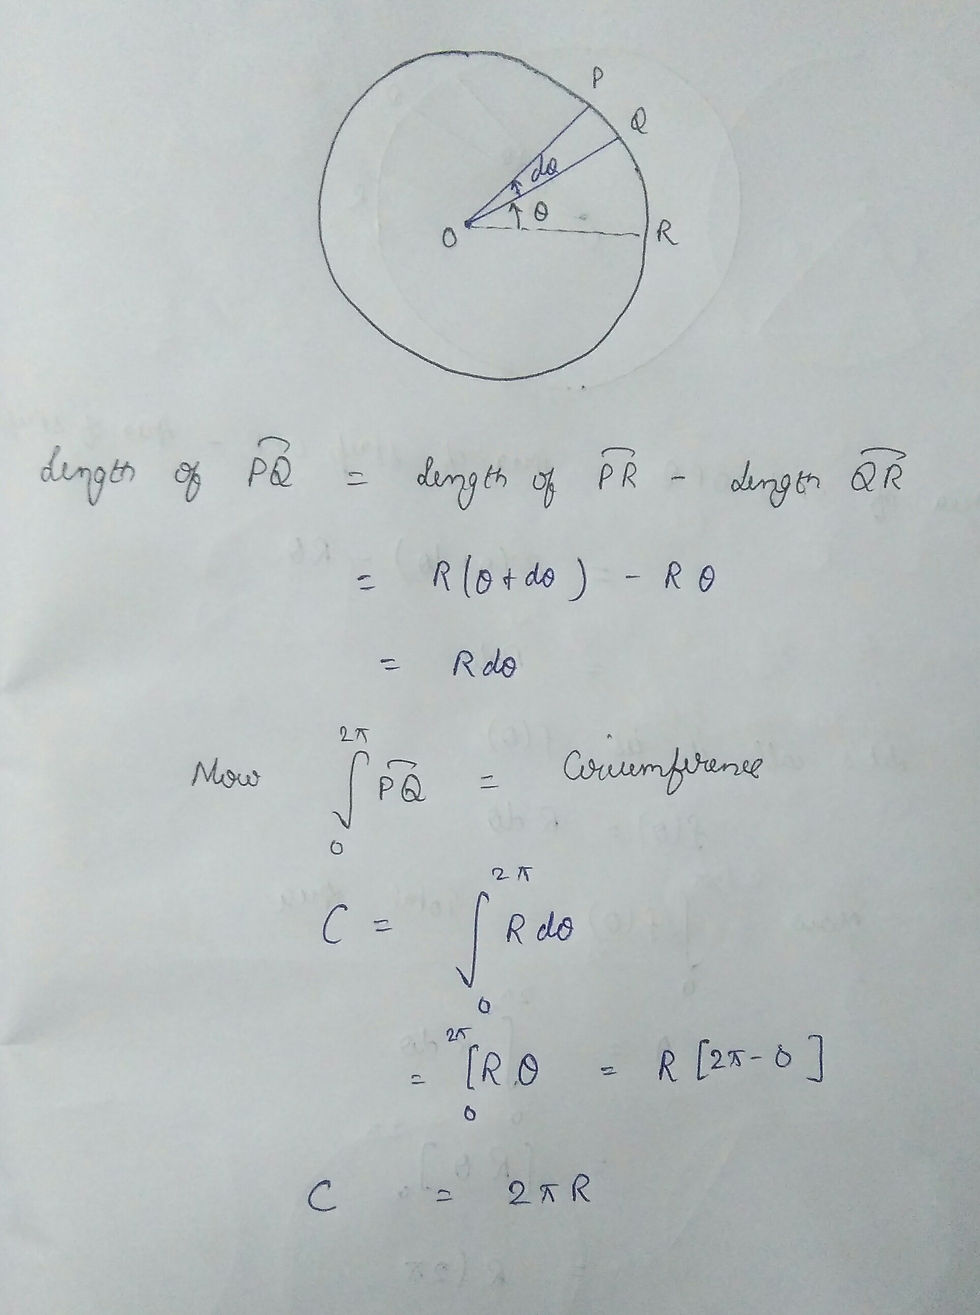 P
Q
dθ
θ
O
R
Length of P͡Q = Length of P͡R - Length Q͡R
= R(θ+dθ) - Rθ
= Rdθ
Now ∫₀²π P͡Q = Circumference
C = ∫₀²π R dθ
= ²π₀[Rθ = R[2π-0]
C = 2πR